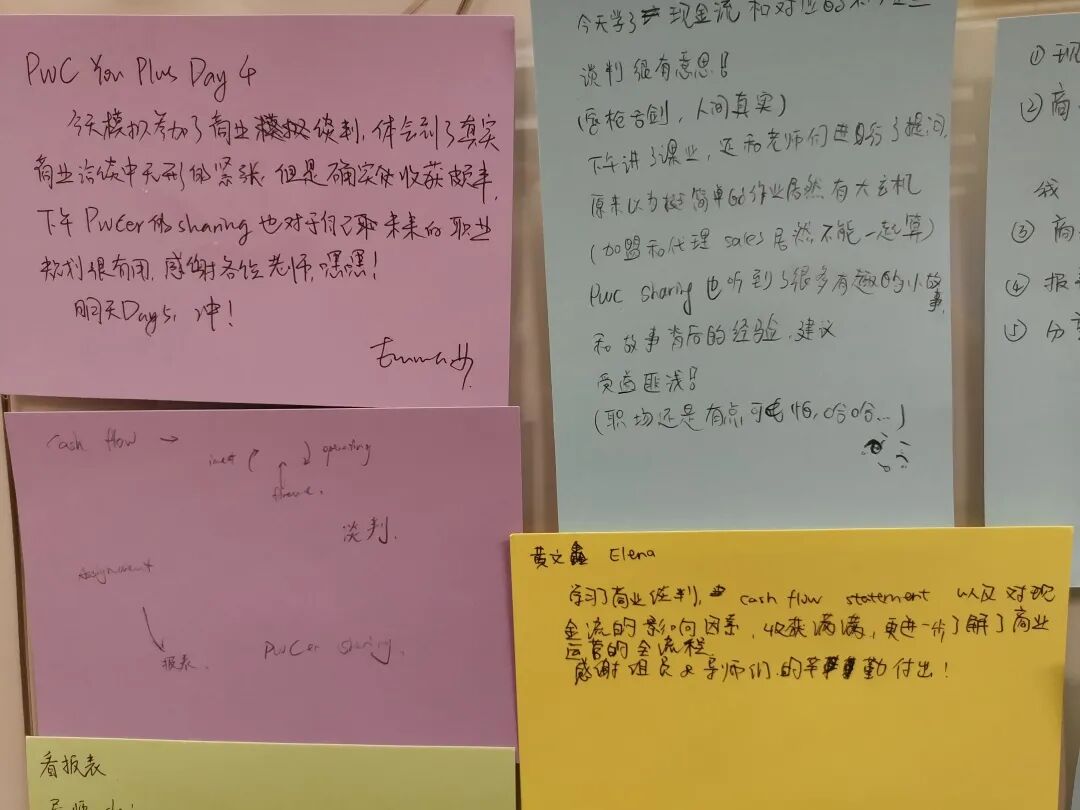 PwC You Plus Day 4
今天模拟参加了商业模拟谈判,体会到了真实
商业洽谈中无形的紧张,但是确实使收获颇丰,
下午PwCer的sharing也对于自己取未来的职业
规划很有用,感谢各位老师,嘿嘿!
明天Day5,冲!
Emma
cash flow →
operating
谈判.
Assignment
报表.
PwCer sharing.
看报表
今天学了现金流和对应的
谈判很有意思!
(唇枪舌剑,人间真实)
下午讲了课业,还和老师们进行了提问,
原来以为挺简单的作业居然有大玄机
(加盟和代理 sales 居然不能一起算)
PwC sharing 也听到了很多有趣的小故事,
和故事背后的经验、建议
受益匪浅!
(职场还是有点可怕,哈哈...)
黄文鑫 Elena
学习了商业谈判, cash flow statement 以及对现
金流的影响因素,收获满满,更进一步了解了商业
运营的全流程
感谢组员&导师们的辛勤付出!
① 现
② 商
我
③ 商
④ 报
⑤ 分